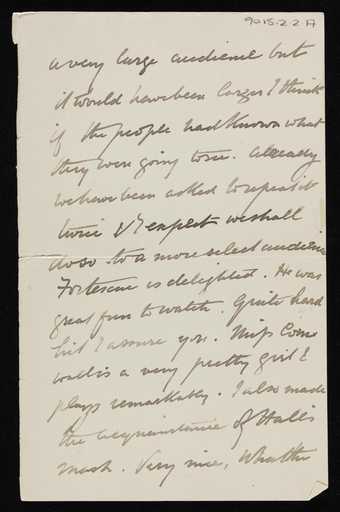 9015.2.2 A
a very large audience but
it would have been larger I think
if the people had known what
they were going to see. Already
we have been asked to repeat it
twice & I expect we shall
do so to a more select audience
Fortescue is delighted. He was
great fun to watch. Quite hard
hit I assure you. Miss Corn
wall is a very pretty girl &
plays remarkably. I also made
the acquaintance of Hall's
mash. Very nice, What the